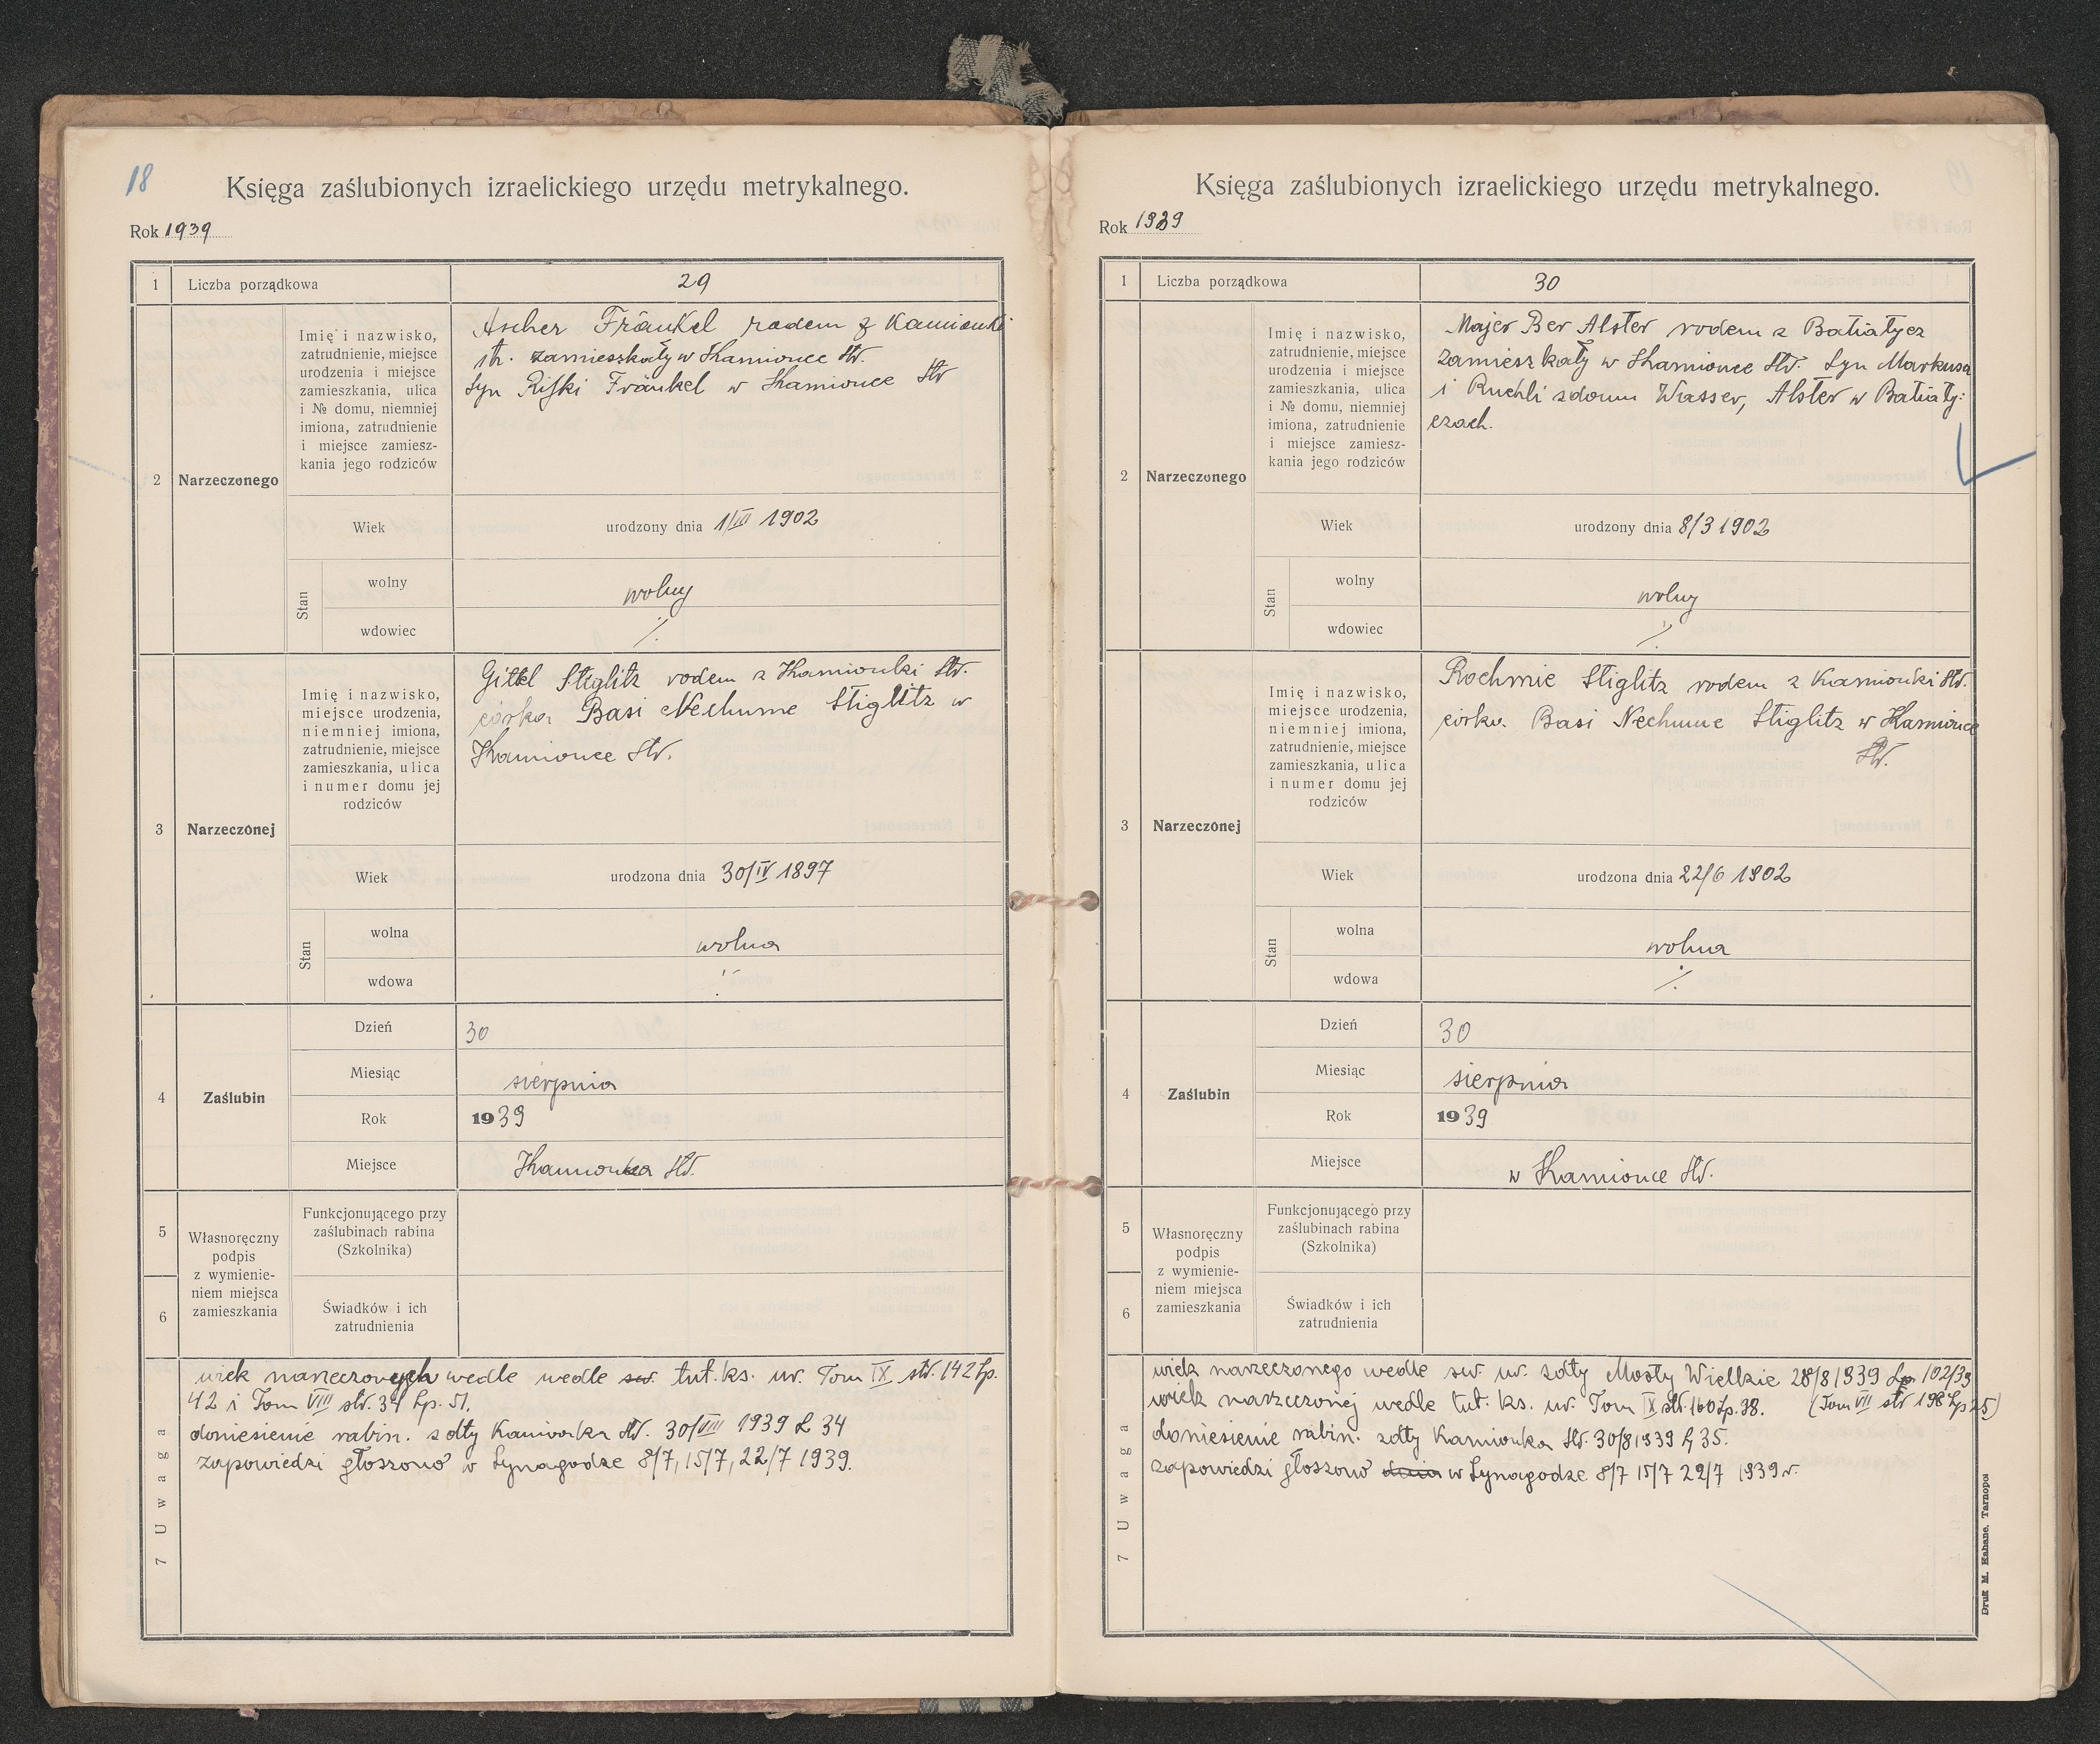 18
Księga zaślubionych izraelickiego urzędu metrykalnego.
Rok 1939
1 Liczba porządkowa 29
2 Narzeczonego
Imię i nazwisko,
zatrudnienie, miejsce
urodzenia i miejsce
zamieszkania, ulica
i № domu, niemniej
imiona, zatrudnienie
i miejsce zamiesz-
kania jego rodziców
Ascher Fränkel rodem z Kamionki
str. zamieszkały w Kamionce Str.
Syn Rifki Fränkel w Kamionce Str
Wiek urodzony dnia 1/VII 1902
Stan
wolny wolny
wdowiec ./.
3 Narzeczónej
Imię i nazwisko,
miejsce urodzenia,
niemniej imiona,
zatrudnienie, miejsce
zamieszkania, ulica
i numer domu jej
rodziców
Gittel Stiglitz rodem z Kamionki Str.
córka Basi Nechume Stiglitz w
Kamionce Str.
Wiek urodzona dnia 30/IV 1897
Stan
wolna wolna
wdowa ./.
4 Zaślubin
Dzień 30
Miesiąc sierpnia
Rok 1939
Miejsce Kamionka Str.
5
6
Własnoręczny
podpis
z wymienie-
niem miejsca
zamieszkania
Funkcjonującego przy
zaślubinach rabina
(Szkolnika)
Świadków i ich
zatrudnienia
7 Uwaga
wiek narzeczonych wedle wedle sw. tut. ks. ur. Tom IX str. 142 Lp.
42 i Tom VIII str. 34 Lp. 51.
doniesienie rabin. z dty Kamionka Str. 30/VIII 1939 L 34
zapowiedzi głoszono w Synagodze 8/7, 15/7, 22/7 1939.
Księga zaślubionych izraelickiego urzędu metrykalnego.
Rok 1939
1 Liczba porządkowa 30
2 Narzeczonego
Imię i nazwisko,
zatrudnienie, miejsce
urodzenia i miejsce
zamieszkania, ulica
i № domu, niemniej
imiona, zatrudnienie
i miejsce zamiesz-
kania jego rodziców
Majer Ber Alster rodem z Batiatycz
zamieszkały w Kamionce Str. Syn Markusa
i Ruchli z domu Wasser, Alster w Batiaty:
czach.
Wiek urodzony dnia 8/3 1902
Stan
wolny wolny
wdowiec ./.
3 Narzeczónej
Imię i nazwisko,
miejsce urodzenia,
niemniej imiona,
zatrudnienie, miejsce
zamieszkania, ulica
i numer domu jej
rodziców
Rochmie Stiglitz rodem z Kamionki Str.
córka Basi Nechume Stiglitz w Kamionce
Str.
Wiek urodzona dnia 22/6 1902
Stan
wolna wolna
wdowa ./.
4 Zaślubin
Dzień 30
Miesiąc sierpnia
Rok 1939
Miejsce w Kamionce Str.
5
6
Własnoręczny
podpis
z wymienie-
niem miejsca
zamieszkania
Funkcjonującego przy
zaślubinach rabina
(Szkolnika)
Świadków i ich
zatrudnienia
7 Uwaga
wiek narzeczonego wedle sw. ur. z dty Mosty Wielkie 28/8 1939 Lp 102/39
wiek narzeczonej wedle tut. ks. ur. Tom X str. 160 Lp. 38. (Tom VII str 198 Lp 25)
doniesienie rabin. z dty Kamionka Str. 30/8 1939 L 35.
zapowiedzi głoszono dnia w Synagodze 8/7 15/7 22/7 1939 r.
Druk M. Kahane, Tarnopol